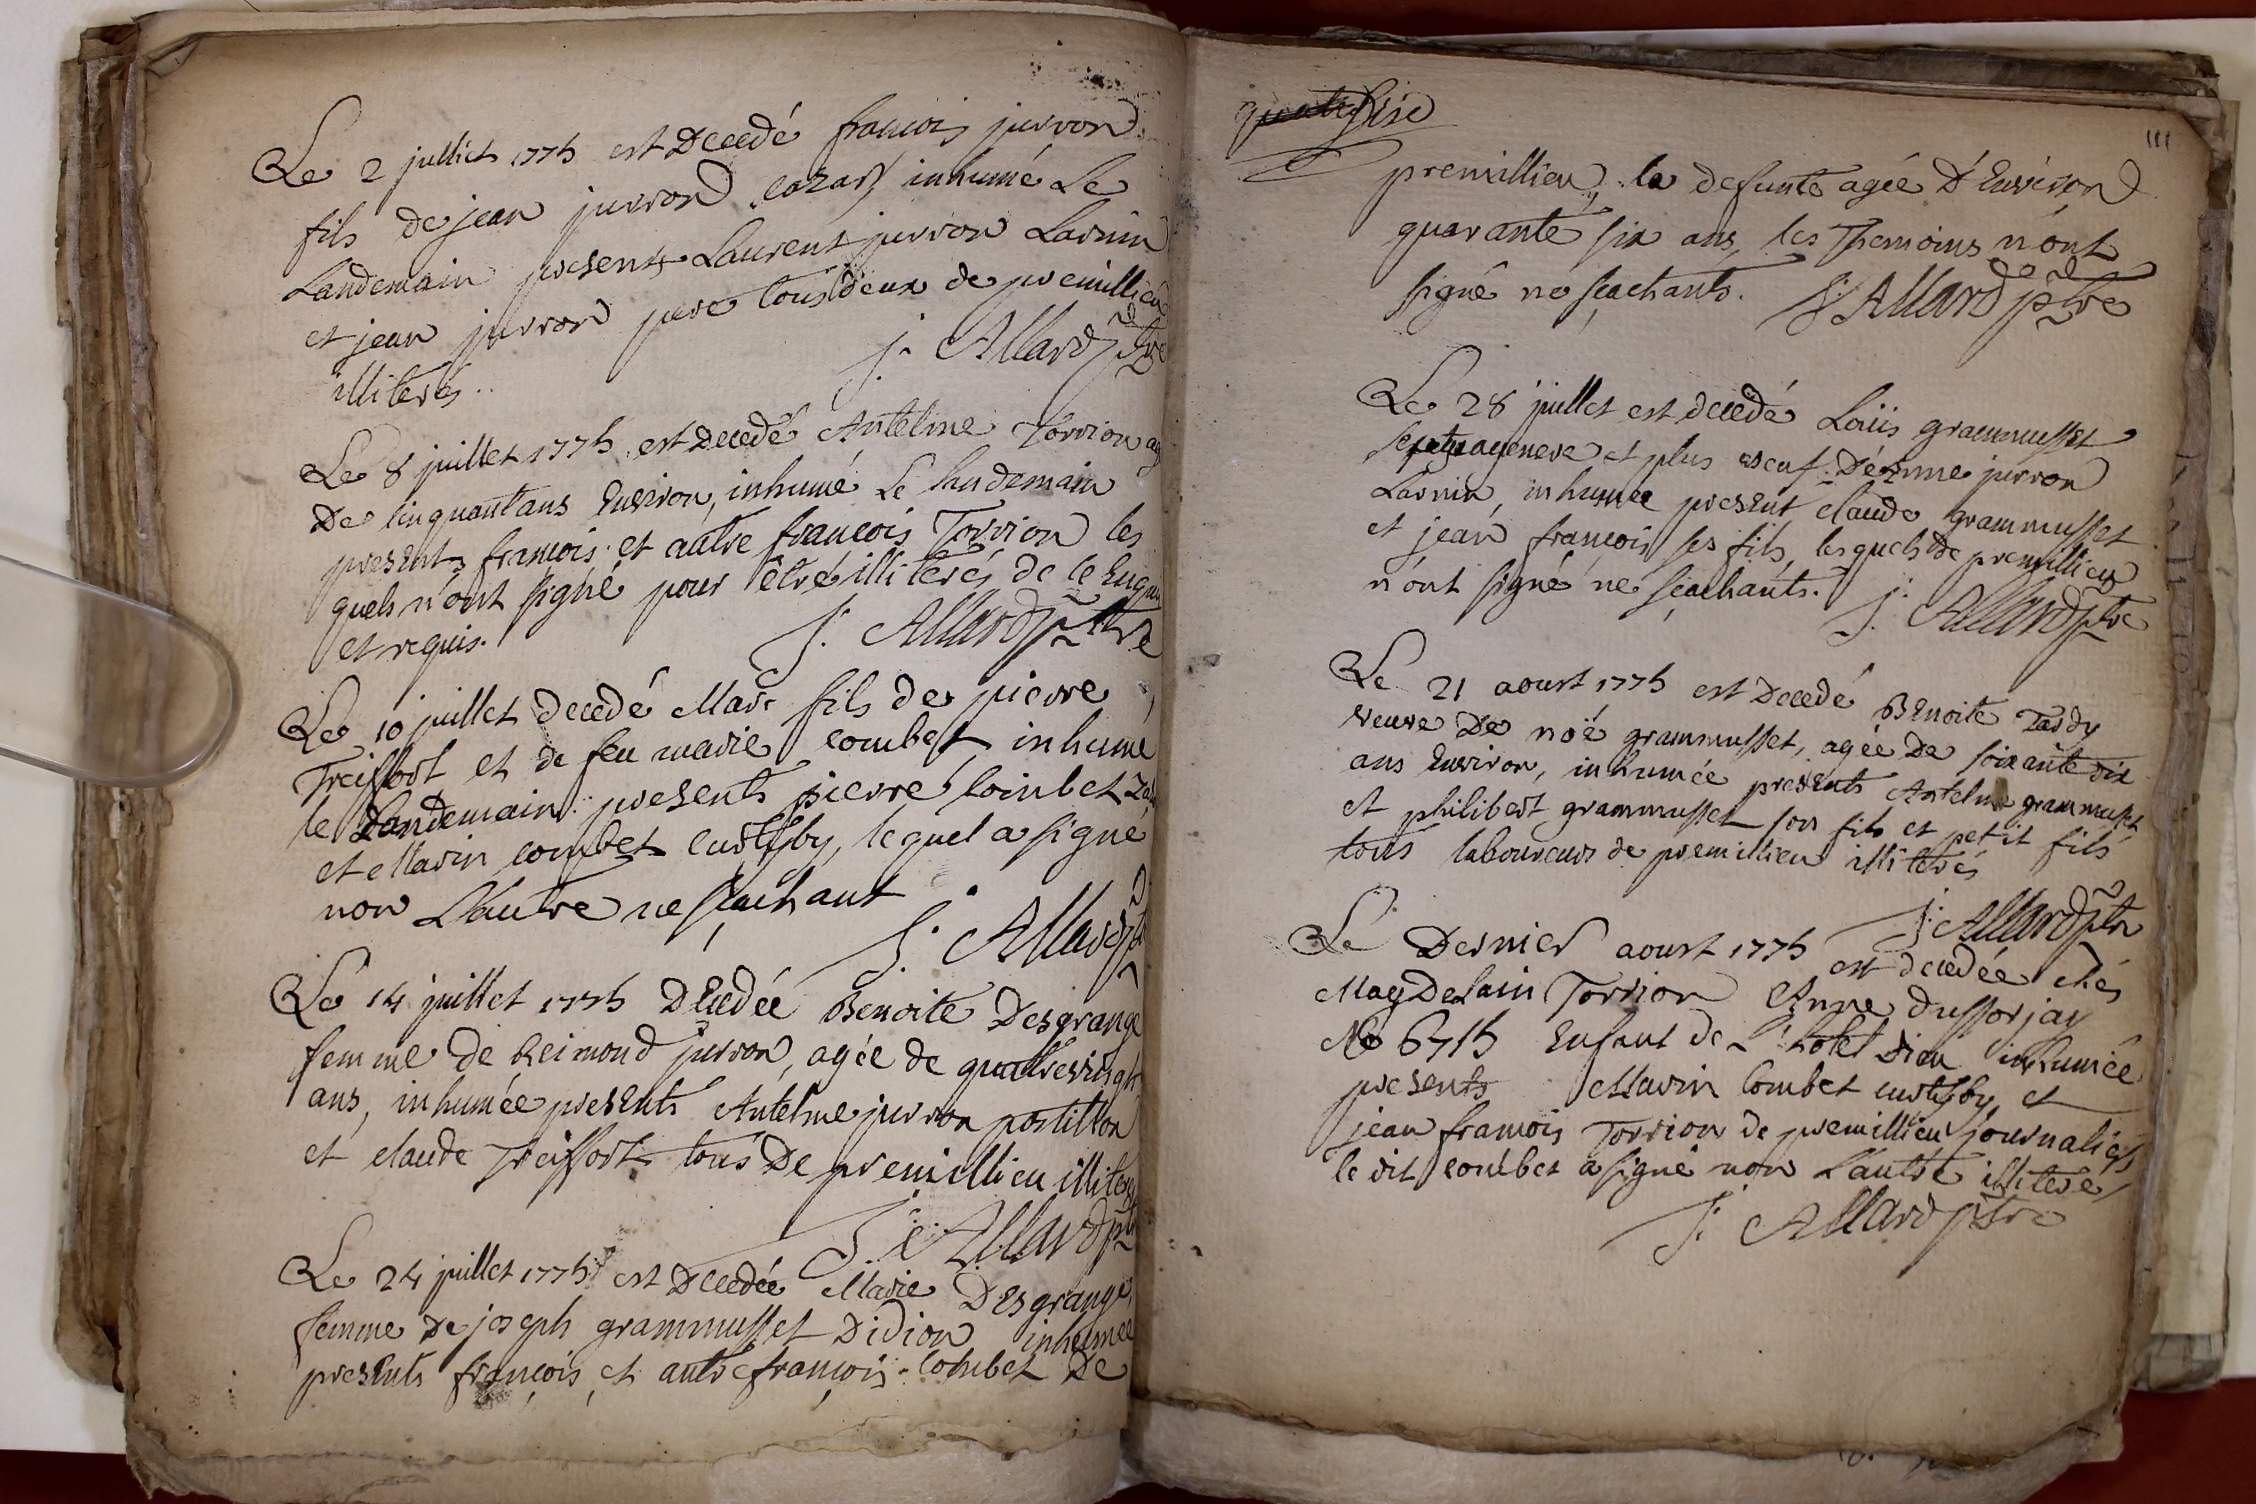 Le 2 julliet 1775 est Decedé francois jurron
fils de jean jurron cazar inhumé Le
Landemain presents Laurent jurron Larnin
et jean jurron pere tous deux de premillieu
illiterés. j. Allard ptre
Le 8 juillet 1775 est Decedé Antelme Torrion ag
De cinquant ans Environ, inhumé Le landemain
presents francois et autre francois Torrion les
quels n'ont signé pour être illiterés de ce Enqu
et requis. j. Allard ptre
Le 10 juillet decedé Marc fils de pierre
Treiffort et de feu marie combet, inhumé
le Landemain presents pierre Combet
et Marin combet custsby, lequel a signé
non L'autre ne sçachant j. Allard pt
Le 14 juillet 1775 Decedée Benoite Desgrange
femme de Reimond jurron, agée de quatrevingt
ans, inhumée presents Antelme jurron postillon
et claude Treiffort tous De premillieu illiter
j. Allard pt
Le 24 juillet 1775 est Decedée Marie Desgrange
femme de joseph grammusset Didion inhumée
presents françois et autre françois Combet De
111
premillieu, la defunte agée D'Environ
quarante six ans, les Themoins n'ont
signé ne sçachants. j. Allard ptre
Le 28 juillet est decedé Loüis grammusset
septuagenere et plus veuf D'émme jurron
Larnin, inhumée present claude grammusset
et jean francois ses fils, lesquels de premillieu
n'ont signé ne sçachants. j. Allard ptre
Le 21 aoust 1775 est Decedé Benoite Tardy
veuve De noë grammusset, agée De soixante dix
ans Environ, inhumée presents Antelme grammuset
et philibert grammusset son fils et petit fils
tous laboureurs de premillieu illiterés
j. Allard ptr
Le Dernier aoust 1775 est decedée chés
Magdelain Torrion Anne dufforjay
No 6715 Enfant de L'hotel Dieu inhumée
presents Marin Combet custsby et
jean francois Torrion de premillieu journaliers
le dit combet a signé non L'autre illiteré
j. Allard ptre